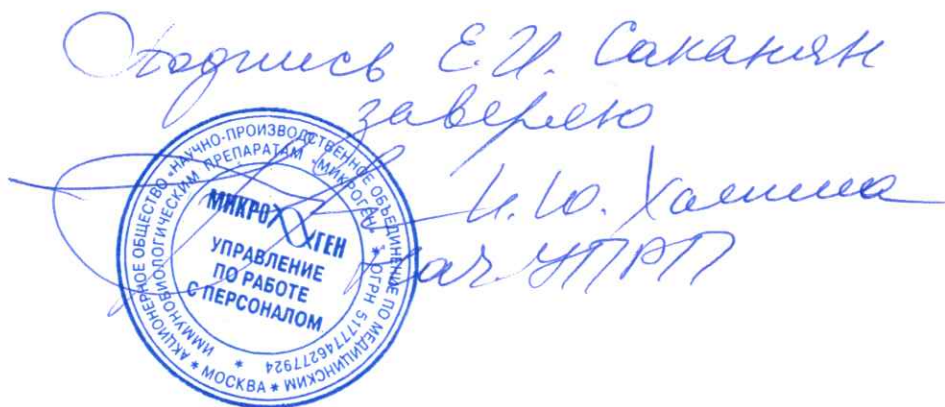 Подпись Е.И. Саканян
заверяю
И.Ю. Халина
Нач. УПРП
АКЦИОНЕРНОЕ ОБЩЕСТВО «НАУЧНО-ПРОИЗВОДСТВЕННОЕ ОБЪЕДИНЕНИЕ ПО МЕДИЦИНСКИМ
ИММУНОБИОЛОГИЧЕСКИМ ПРЕПАРАТАМ «МИКРОГЕН» * ОГРН 5177746277924 *
* МОСКВА *
МИКРОГЕН
УПРАВЛЕНИЕ
ПО РАБОТЕ
С ПЕРСОНАЛОМ